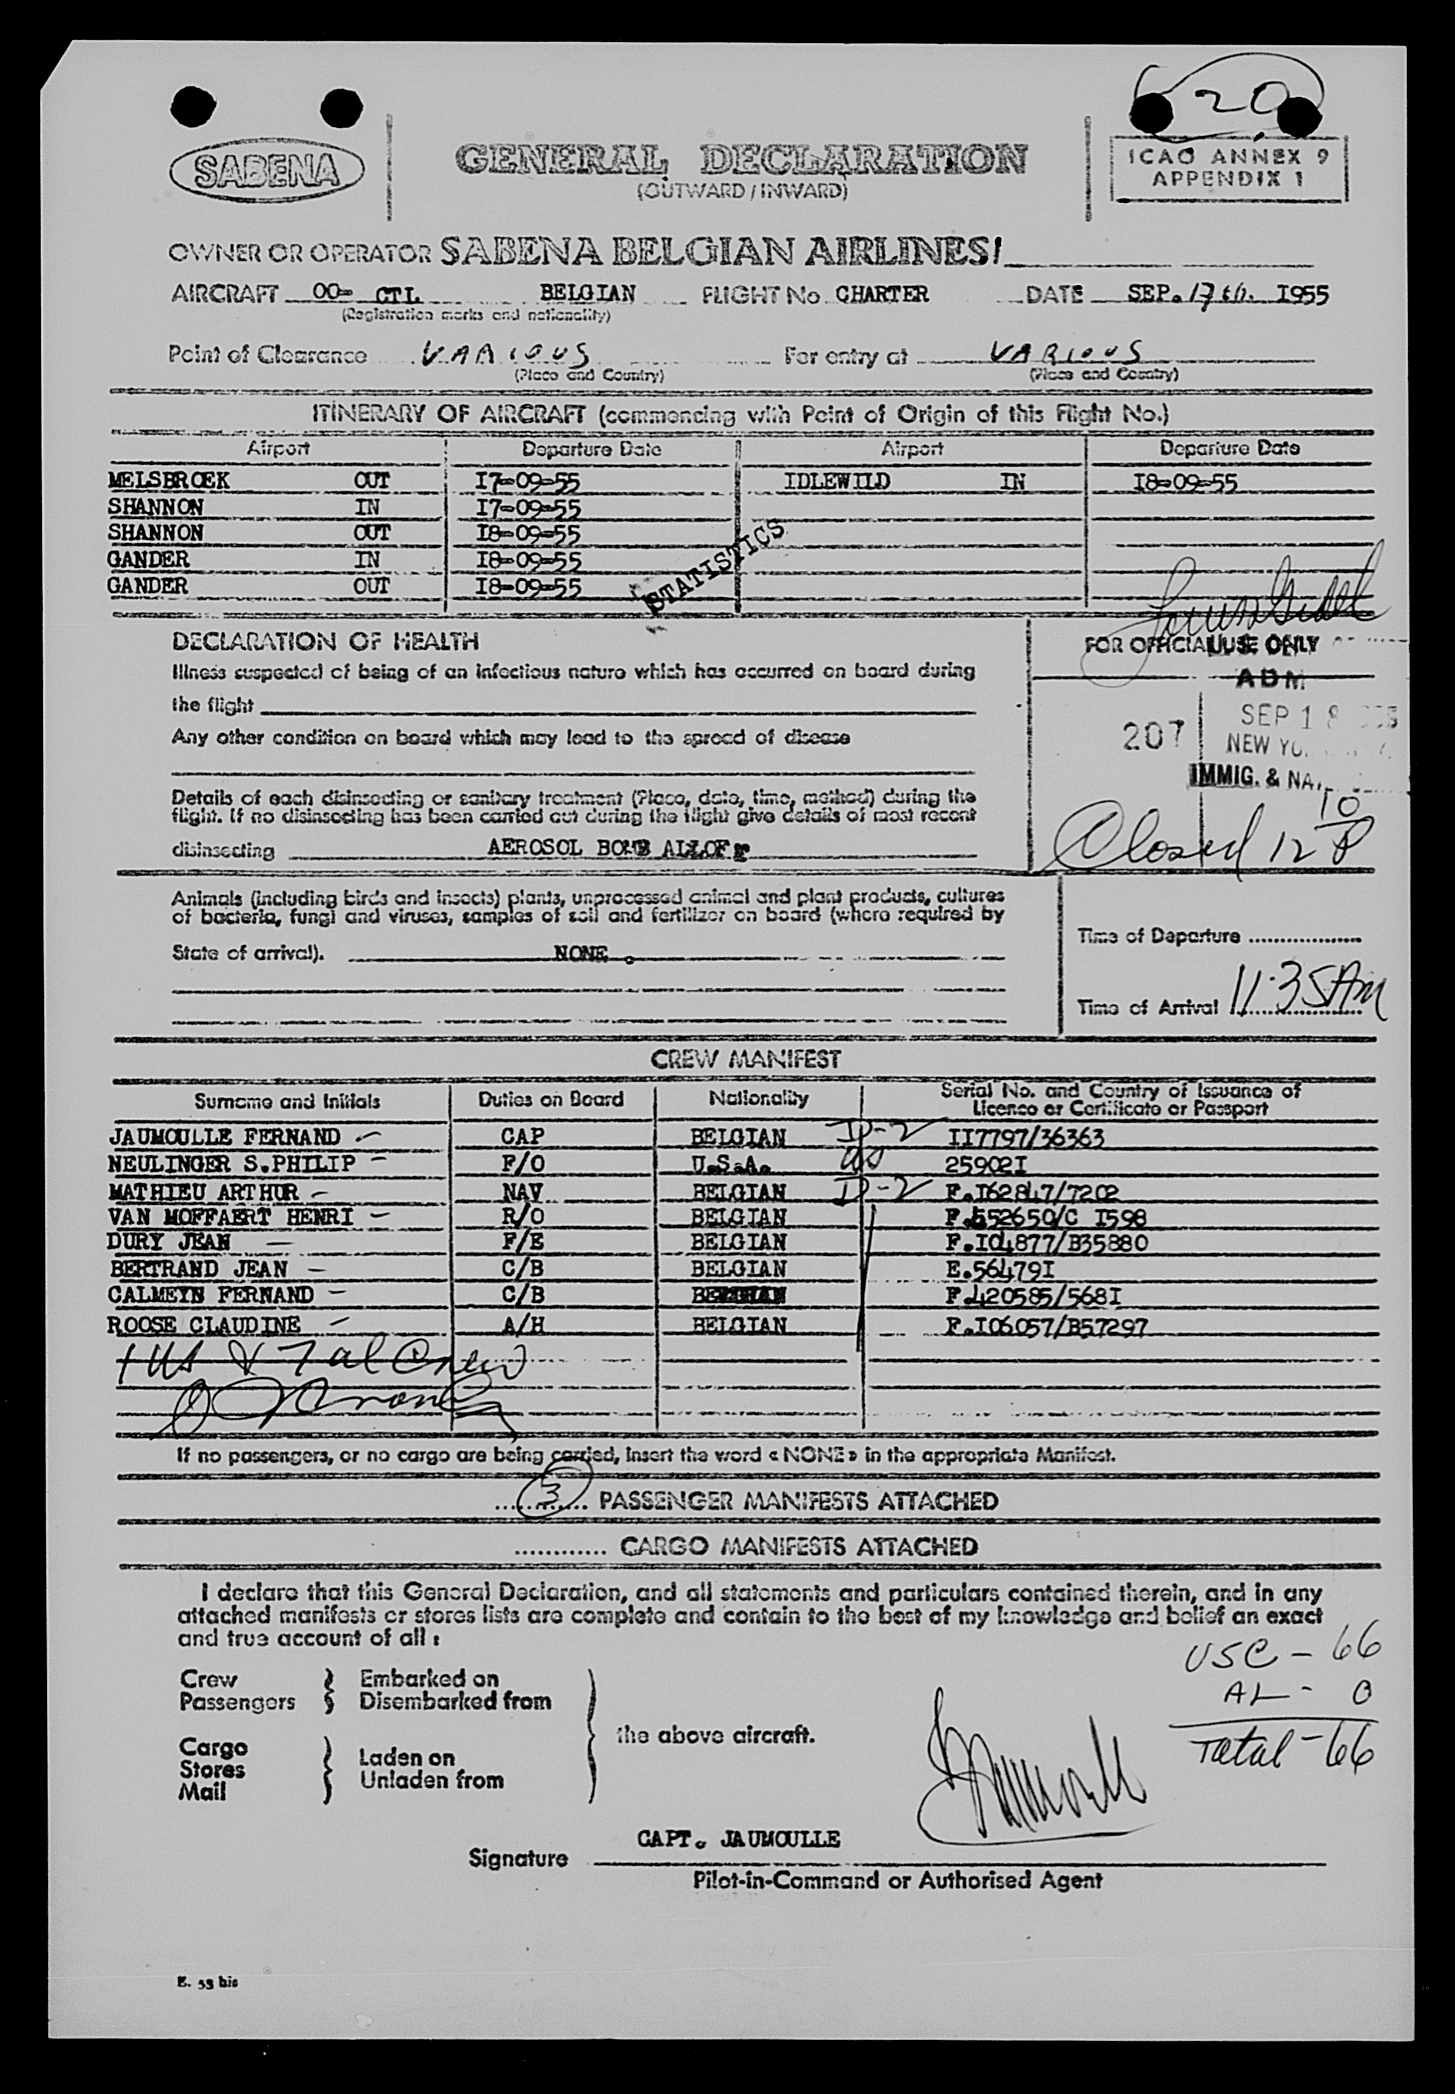 20
SABENA
GENERAL DECLARATION
(OUTWARD / INWARD)
ICAO ANNEX 9
APPENDIX 1
OWNER OR OPERATOR SABENA BELGIAN AIRLINES
AIRCRAFT OO- CTL BELGIAN FLIGHT No CHARTER DATE SEP. 17th. I955
(Registration marks and nationality)
Point of Clearance VARIOUS For entry at VARIOUS
(Place and Country) (Place and Country)
ITINERARY OF AIRCRAFT (commencing with Point of Origin of this Flight No.)
Airport Departure Date Airport Departure Date
MELSBROEK OUT I7-09-55 IDLEWILD IN I8-09-55
SHANNON IN I7-09-55
SHANNON OUT I8-09-55
GANDER IN I8-09-55
GANDER OUT I8-09-55
STATISTICS
DECLARATION OF HEALTH
FOR OFFICIAL USE ONLY
Illness suspected of being of an infectious nature which has occurred on board during
the flight
ADM
SEP 18
207
NEW
IMMIG. &
Any other condition on board which may lead to the spread of disease
Details of each disinsecting or sanitary treatment (Place, date, time, method) during the
flight. If no disinsecting has been carried out during the flight give details of most recent
disinsecting AEROSOL BOMB
Closed 12 10/8
Animals (including birds and insects) plants, unprocessed animal and plant products, cultures
of bacteria, fungi and viruses, samples of soil and fertilizer on board (where required by
State of arrival). NONE .
Time of Departure
Time of Arrival 11.35 AM
CREW MANIFEST
Surname and Initials Duties on Board Nationality Serial No. and Country of Issuance of
Licence or Certificate or Passport
JAUMOULLE FERNAND CAP BELGIAN D-2 II7797/36363
NEULINGER S.PHILIP F/O U.S.A. 25902I
MATHIEU ARTHUR NAV BELGIAN D-2 F.I62847/7202
VAN MOFFAERT HENRI R/O BELGIAN F.552650/C I598
DURY JEAN F/E BELGIAN F.I04877/B35880
BERTRAND JEAN C/B BELGIAN E.56479I
CALMEYN FERNAND C/B F.420585/568I
ROOSE CLAUDINE A/H BELGIAN F.I06057/B57297
1 US & 7 al Crew
If no passengers, or no cargo are being carried, insert the word « NONE » in the appropriate Manifest.
3 PASSENGER MANIFESTS ATTACHED
CARGO MANIFESTS ATTACHED
I declare that this General Declaration, and all statements and particulars contained therein, and in any
attached manifests or stores lists are complete and contain to the best of my knowledge and belief an exact
and true account of all :
Crew Embarked on
Passengers Disembarked from
the above aircraft.
Cargo
Stores Laden on
Mail Unladen from
USC - 66
AL - 0
Total - 66
CAPT. JAUMOULLE
Signature
Pilot-in-Command or Authorised Agent
E. 53 bis